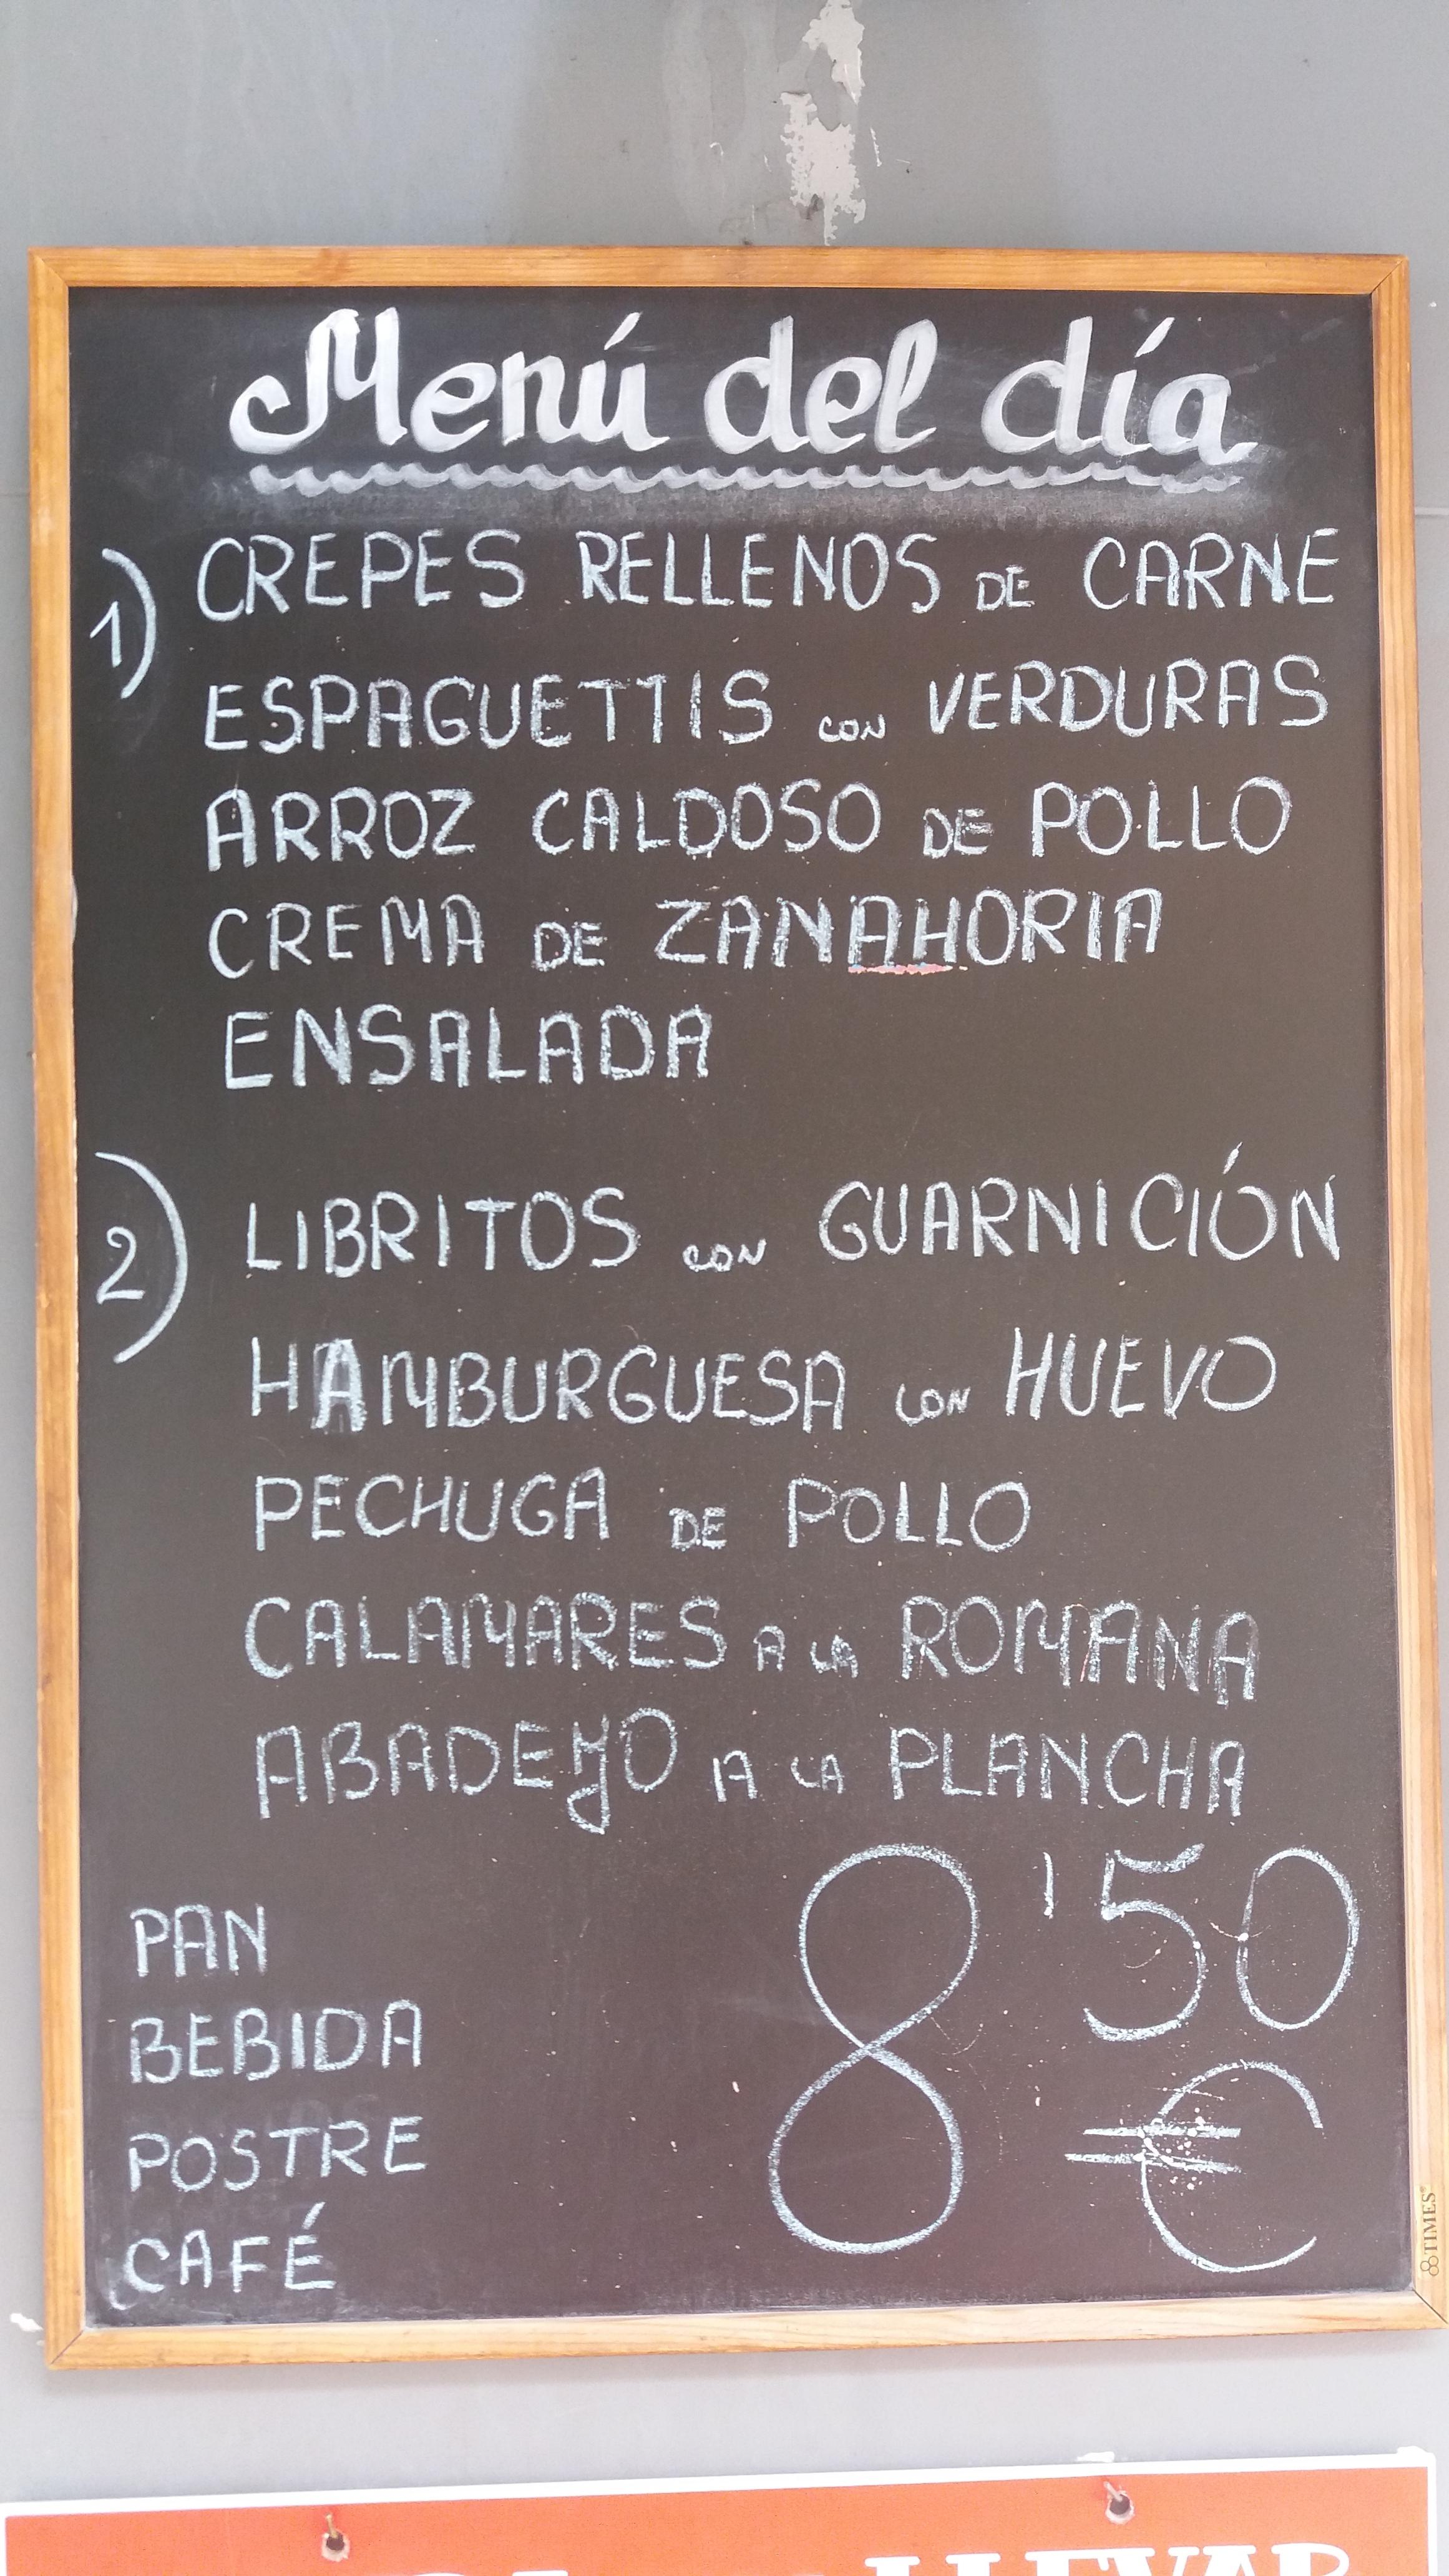 Menú del día
1) CREPES RELLENOS DE CARNE
ESPAGUETTIS CON VERDURAS
ARROZ CALDOSO DE POLLO
CREMA DE ZANAHORIA
ENSALADA
2) LIBRITOS CON GUARNICIÓN
HAMBURGUESA CON HUEVO
PECHUGA DE POLLO
CALAMARES A LA ROMANA
ABADEJO A LA PLANCHA
8'50 €
PAN
BEBIDA
POSTRE
CAFÉ
TIMES
LLEVAR